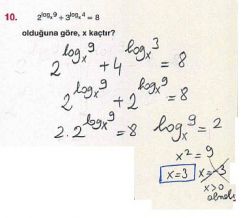 10. 2^{log_x 9} + 3^{log_x 4} = 8
olduğuna göre, x kaçtır?
2^{log_x 9} + 4^{log_x 3} = 8
2^{log_x 9} + 2^{log_x 9} = 8
2 . 2^{log_x 9} = 8 log_x 9 = 2
x² = 9
x = 3 x = -3
x > 0